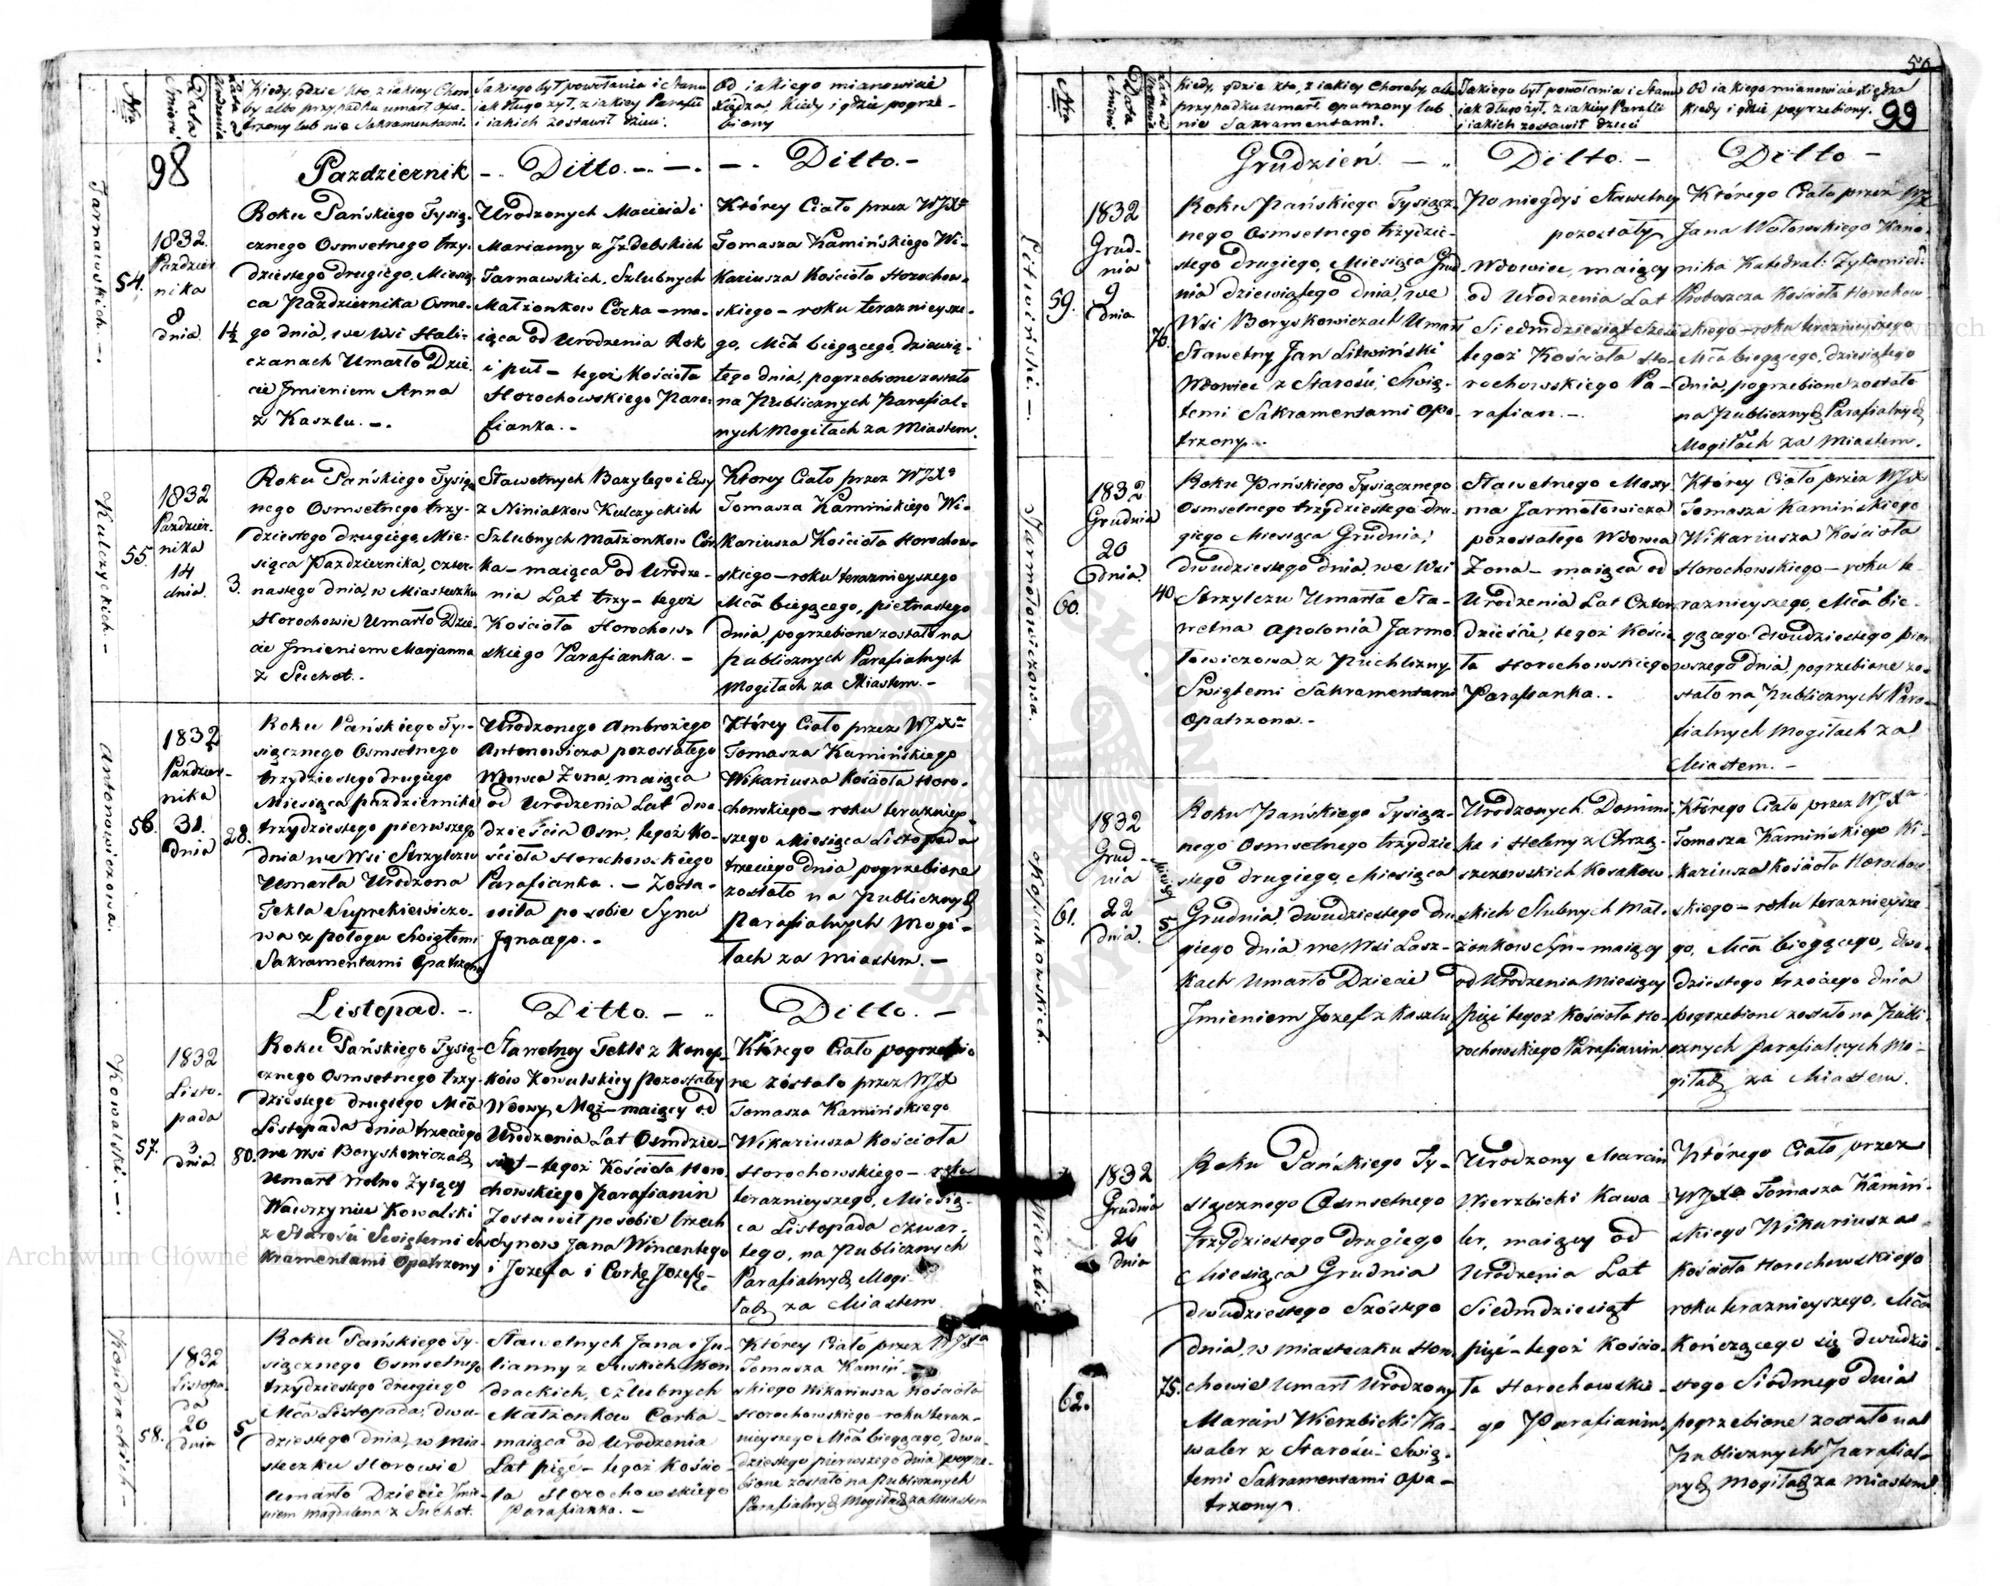 98
Nro
Data
Śmierci
Lata od
Urodzenia
Kiedy, gdzie kto, z iakiey Choro
by albo przypadku umarł Opa-
trzony lub nie Sakramentami.
Jakiego był powołania i Stanu
iak długo żył, z iakiey Parafii
i iakich zostawił dzieci
Od iakiego mianowicie
Xiędza, kiedy i gdzie pogrze-
biony
Pazdziernik
Ditto.
Ditto.
Tarnawskich.
54.
1832.
Pazdzier
nika
8
dnia.
1½
Roku Pańskiego Tysią-
cznego Osmsetnego trzy-
dziestego drugiego, Miesią
ca Pazdziernika Osme-
go dnia, we Wsi Hali-
czanach Umarło Dzie-
cie Jmieniem Anna
z Kaszlu.
Urodzonych Macieia i
Marianny z Jzdebskich
Tarnawskich, Szlubnych
Małzonkow Corka - ma-
iąca od Urodzenia Rok
i puł - tegoż Kościoła
Horochowskiego Para-
fianka.
Którey Ciało przez WJXa
Tomasza Kamińskiego Wi-
kariusza Kościoła Horochow-
skiego - roku teraznieysze-
go, Mca biegącego, dziewią-
tego dnia, pogrzebione zostało
na Publicznych Parafial-
nych Mogiłach za Miastem.
Kulczyckich.
55.
1832
Pazdzier-
nika
14
dnia.
3.
Roku Pańskiego Tysią
nego Osmsetnego trzy-
dziestego drugiego, Mie-
siąca Pazdziernika, czter-
nastego dnia, w Miasteczku
Horochowie Umarło Dzie-
cie Jmieniem Marjanna
z Suchot.
Sławetnych Bazylego i Ewy
z Niniatkow Kulczyckich
Szlubnych Małzonkow Cór
ka - maiąca od Urodze-
nia Lat trzy - tegoż
Kościoła Horochow-
skiego Parafianka.
Ktorey Ciało przez WJXa
Tomasza Kamińskiego Wi-
kariusza Kościoła Horochow-
skiego - roku teraznieyszego
Mca biegącego, piętnastego
dnia, pogrzebione zostało na
publicznych Parafialnych
Mogiłach za Miastem.
Antonowiczowa.
56.
1832
Pazdzier-
nika
31.
dnia
28.
Roku Pańskiego Ty-
siącznego Osmsetnego
trzydziestego drugiego
Miesiąca pazdziernika
trzydziestego pierwszego
dnia we Wsi Strzylczu
Umarła Urodzona
Tekla Suprekiewiczo-
wa z połogu Swiętemi
Sakramentami Opatrzona
Urodzonego Ambrożego
Antonowicza pozostałego
Wdowca Zona, maiąca
od Urodzenia Lat dwa-
dzieścia Osm, tegoż Ko-
ścioła Horochowskiego
Parafianka. - Zosta-
wiła po sobie Syna
Jgnacego.
Którey Ciało przez WJXa
Tomasza Kamińskiego
Wikariusza Kościoła Horo-
chowskiego - roku teraźniey-
szego Miesiąca Listopada
trzeciego dnia pogrzebione
zostało na Publicznych
Parafialnych Mogi-
łach za Miastem.
Listopad.
Ditto.
Ditto.
Kowalski.
57.
1832
Listo-
pada
3
dnia.
80.
Roku Pańskiego Tysią-
cznego Osmsetnego trzy-
dziestego drugiego Mca
Listopada dnia trzeciego
we Wsi Boryskowiczach
Umarł Wolno Zyiący
Wawrzyniec Kowalski
z Starości Swiętemi Sa
kramentami Opatrzony
Sławetney Tekli z Konop-
ków Kowalskiey Pozostałey
Wdowy, Mąż - maiący od
Urodzenia Lat Osmdzie-
siąt - tegoż Kościoła Horo-
chowskiego Parafianin
Zostawił po sobie trzech
Synow Jana Wincentego
i Jozefa i Corkę Jozefę
Którego Ciało pogrzebio
ne zostało przez WJX
Tomasza Kamińskiego
Wikariusza Kościoła
Horochowskiego - roku
teraznieyszego, Miesią-
ca Listopada czwar-
tego, na Publicznych
Parafialnych Mogi-
łach za Miastem.
Kondrackich
58.
1832
Listopa-
da
20
dnia
5
Roku Pańskiego Ty-
siącznego Osmsetnego
trzydziestego drugiego
Mca Listopada, dwu-
dziestego dnia, w Mia-
steczku Horowie
Umarło Dziecie Jmie-
niem Magdalena z Suchot.
Sławetnych Jana i Ju-
lianny z Kon
drackich, Szlubnych
Małzonkow Corka -
maiąca od Urodzenia
Lat pięć - tegoż Kościo-
ła Horochowskiego
Parafianka.
Którey Ciało przez WJXa
Tomasza Kamiń-
skiego Wikariusza Kościoła
Horochowskiego - roku teraz-
nieyszego Mca biegącego, dwu-
dziestego pierwszego dnia pogrze-
bione zostało na Publicznych
Parafialnych Mogiłach za Miastem
50
99
Nro
Data
Śmierci
Lata od
Urodzenia
Kiedy, gdzie kto, z iakiey Choroby, albo
przypadku umarł, opatrzony lub
nie Sakramentami.
Jakiego był powołania i Stanu
iak długo żył, z iakiey Parafii
i iakich zostawił dzieci
Od iakiego mianowicie Xiędza
kiedy i gdzie pogrzebiony.
Grudzień.
Ditto.
Ditto
Litwiński.
59.
1832
Grud-
nia
9
Dnia
76.
Roku Pańskiego Tysiącz-
nego Osmsetnego trzydzie-
stego drugiego, Miesiąca Grud-
nia dziewiątego dnia, we
Wsi Boryskowiczach Umarł
Sławetny Jan Litwiński
Wdowiec z Starości, Swię-
temi Sakramentami Opa-
trzony.
Po niegdyś Sławetney
pozostały
Wdowiec, maiący
od Urodzenia Lat
Siedmdziesiąt sześć
tegoż Kościoła Ho-
rochowskiego Pa-
rafian.
Którego Ciało przez WJX
Jana Wołowskiego Kano-
nika Katedral: Zytomir:
Proboszcza Kościoła Horochow-
skiego - roku teraznieyszego
Mca biegącego, dziesiątego
dnia, pogrzebione zostało
na Publicznych Parafialnych
Mogiłach za Miastem.
Jarmołowiczowa.
60.
1832
Grudnia
20
dnia.
40.
Roku Pańskiego Tysiącznego
Osmsetnego trzydziestego dru-
giego Miesiąca Grudnia,
dwudziestego dnia, we Wsi
Strzylczu Umarła Sła-
wetna Apolonia Jarmo
łowiczowa z Puchliny
Swiętemi Sakramentami
Opatrzona.
Sławetnego Maxy
ma Jarmołowicza
pozostałego Wdowca
Zona - maiąca od
Urodzenia Lat Czter
dzieście, tegoż Kościo
ła Horochowskiego
Parafianka.
Którey Ciało przez WJX
Tomasza Kamińskiego
Wikariusza Kościoła
Horochowskiego - roku te-
raznieyszego, Mca bie-
gącego dwudziestego pier
wszego dnia, pogrzebione zo-
stało na Publicznych Para-
fialnych Mogiłach za
Miastem.
Kosakowskich
61.
1832
Grud-
nia
22
dnia.
5
Roku Pańskiego Tysiącz-
nego Osmsetnego trzydzie
stego drugiego, Miesiąca
Grudnia, dwudziestego dru
giego dnia, we Wsi Łasz-
kach Umarło Dziecie
Jmieniem Jozef z Kaszlu
Urodzonych Domini-
ka i Heleny z Chrzą-
szczewskich Kosakow-
skich Slubnych Mał-
żonkow Syn - maiący
od Urodzenia Miesięcy
pięć tegoż Kościoła Ho-
rochowskiego Parafianin
Którego Ciało przez WJXa
Tomasza Kamińskiego Wi-
kariusza Kościoła Horochow
skiego - roku teraznieysze
go, Mca biegącego, dwu-
dziestego trzeciego dnia
pogrzebione zostało na Publi-
cznych Parafialnych Mo-
giłach za Miastem.
Wierzbic
62.
1832
Grudnia
26
dnia
75.
Roku Pańskiego Ty-
siącznego Osmsetnego
trzydziestego Drugiego
Miesiąca Grudnia
dwudziestego Szóstego
dnia, w miasteczku Horo
chowie Umarł Urodzony
Marcin Wierzbicki Ka-
waler z Starości Swię-
temi Sakramentami Opa-
trzony.
Urodzony Marcin
Wierzbicki Kawa
ler, maiący od
Urodzenia Lat
Siedmdziesiąt
pięć - tegoż Kościo-
ła Horochowskie-
go Parafianin
Którego Ciało przez
WJXa Tomasza Kamiń-
skiego Wikariusza
Kościoła Horochowskiego
roku teraznieyszego, Mca
Kończącego się dwudzie
stego Siódmego dnia
pogrzebione zostało na
Publicznych Parafial-
nych Mogiłach za Miastem.
Archiwum Główne Akt Dawnych